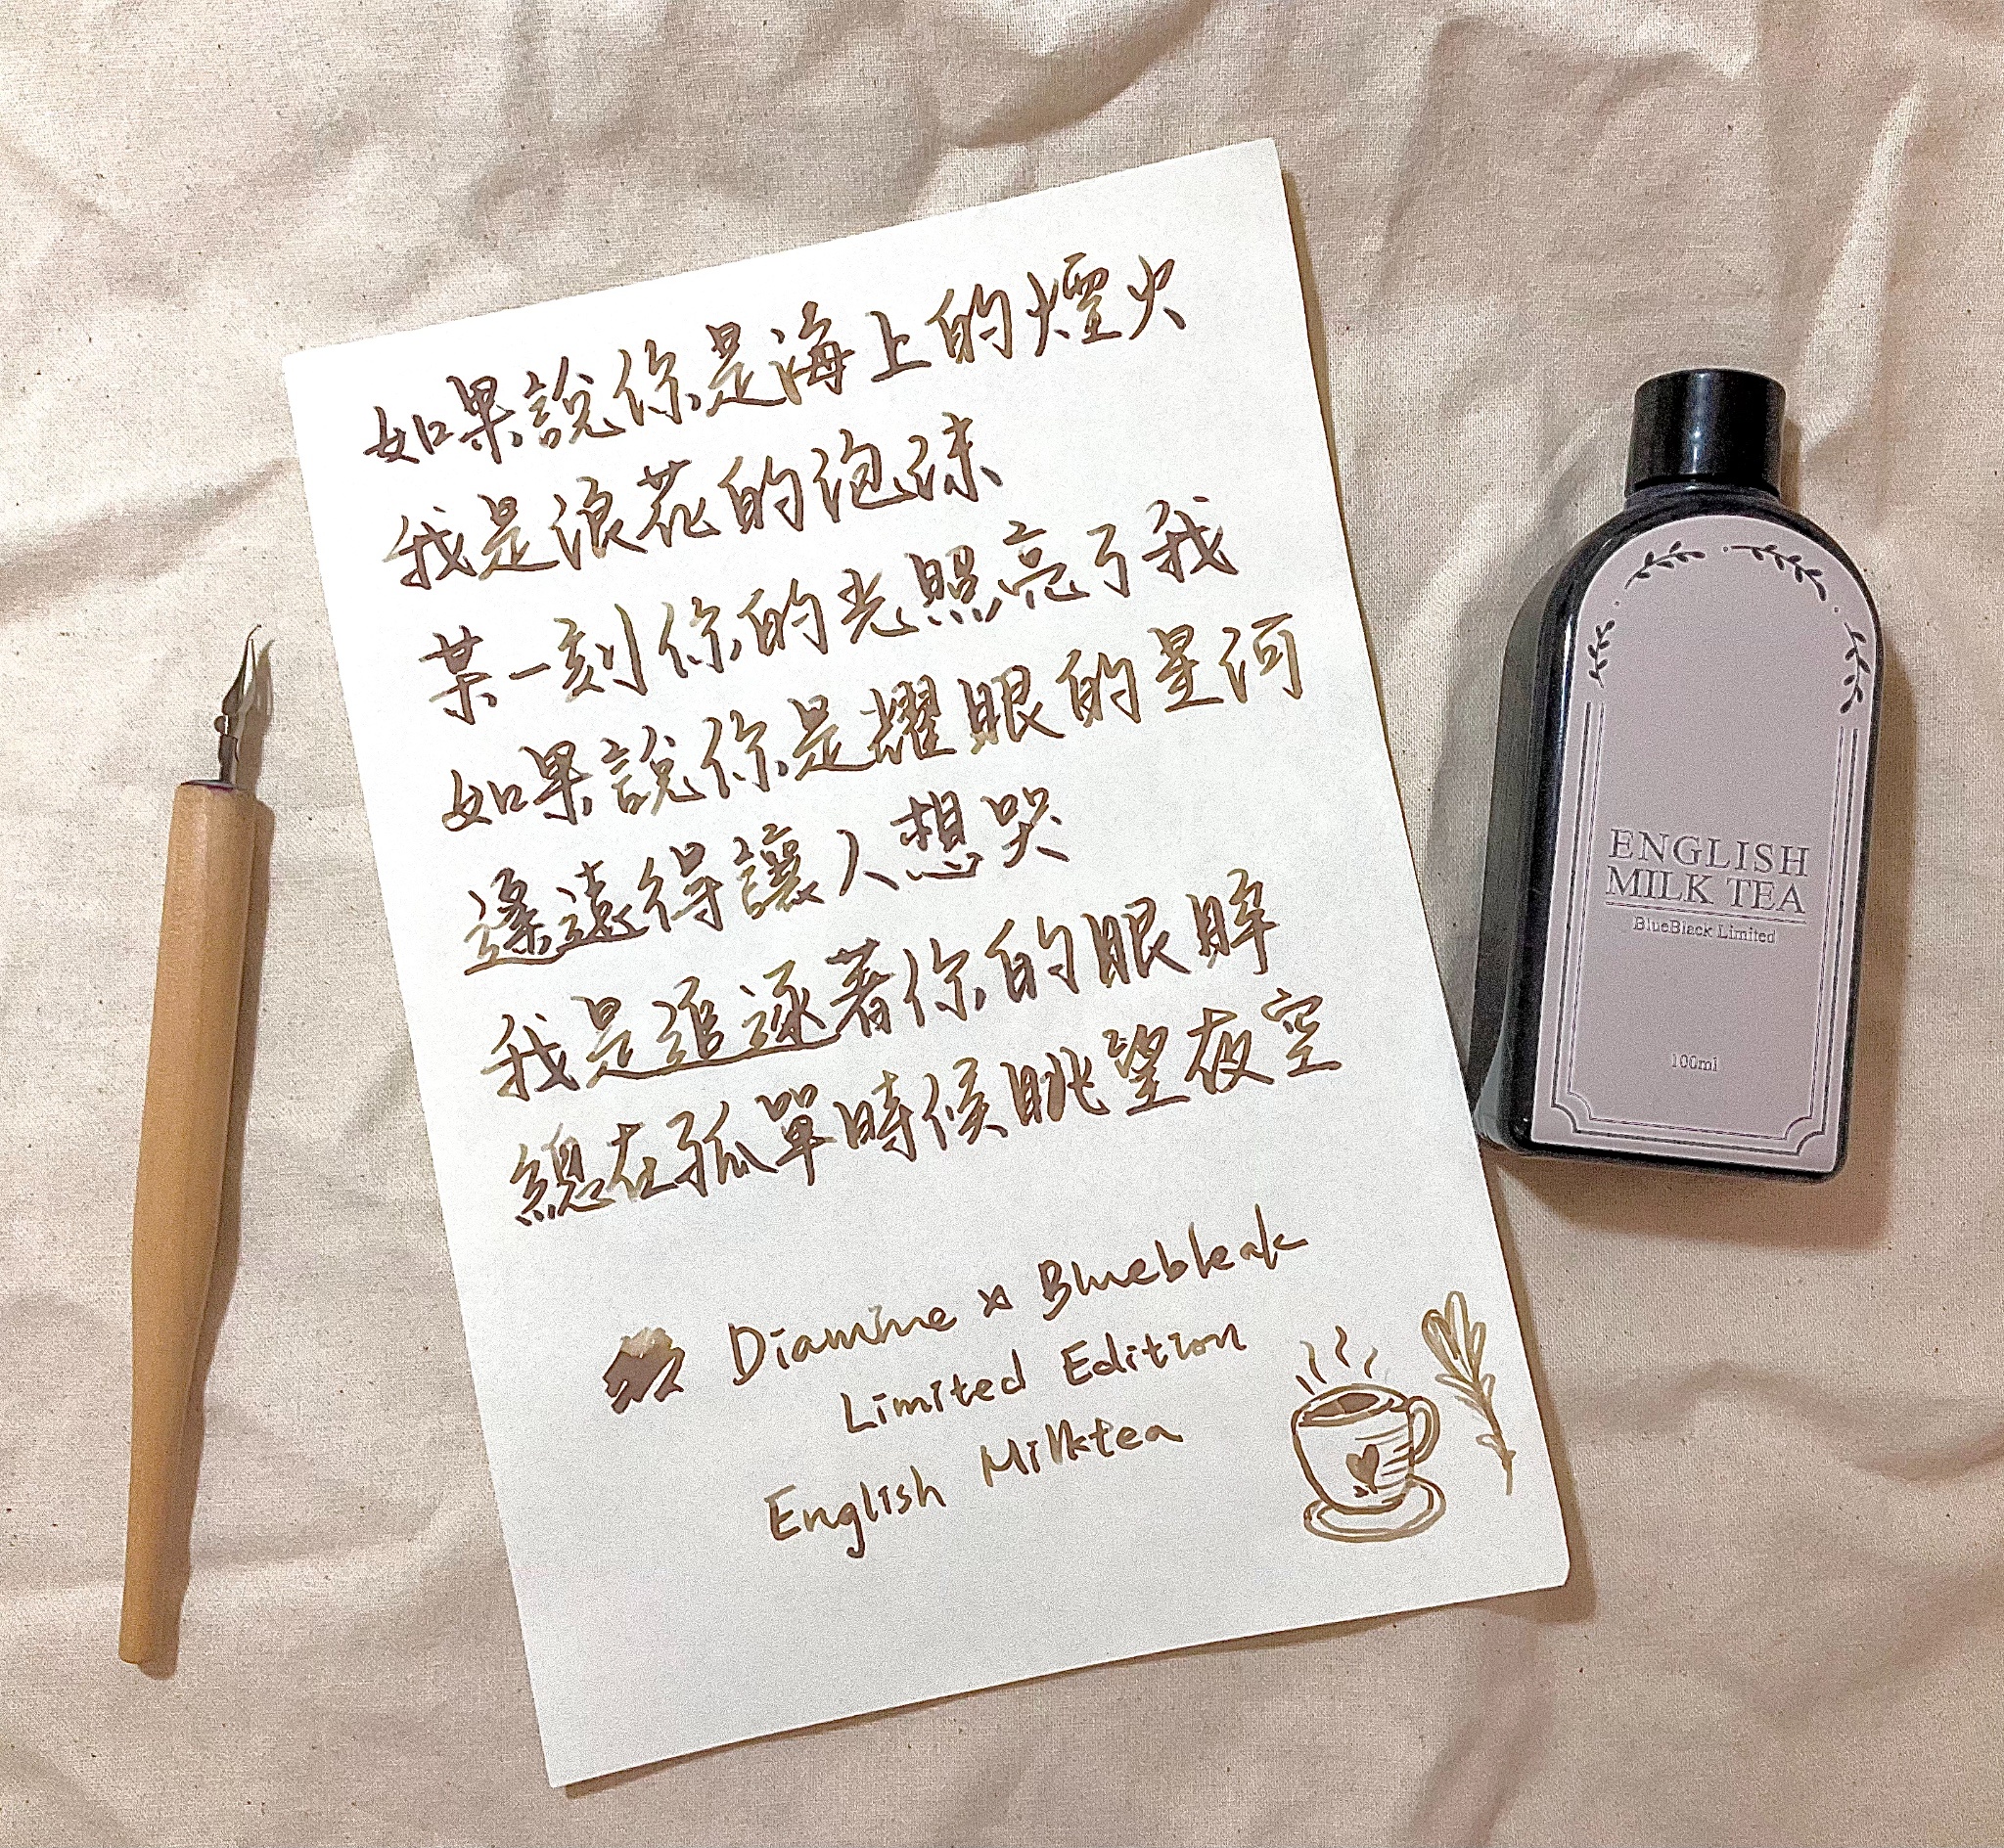 如果說你是海上的煙火
我是浪花的泡沫
某一刻你的光照亮了我
如果說你是耀眼的星河
遙遠得讓人想哭
我是追逐著你的眼眸
總在孤單時候眺望夜空
Diamine x Bluebleak
Limited Edition
English Milktea
ENGLISH
MILK TEA
BlueBlack Limited
100ml